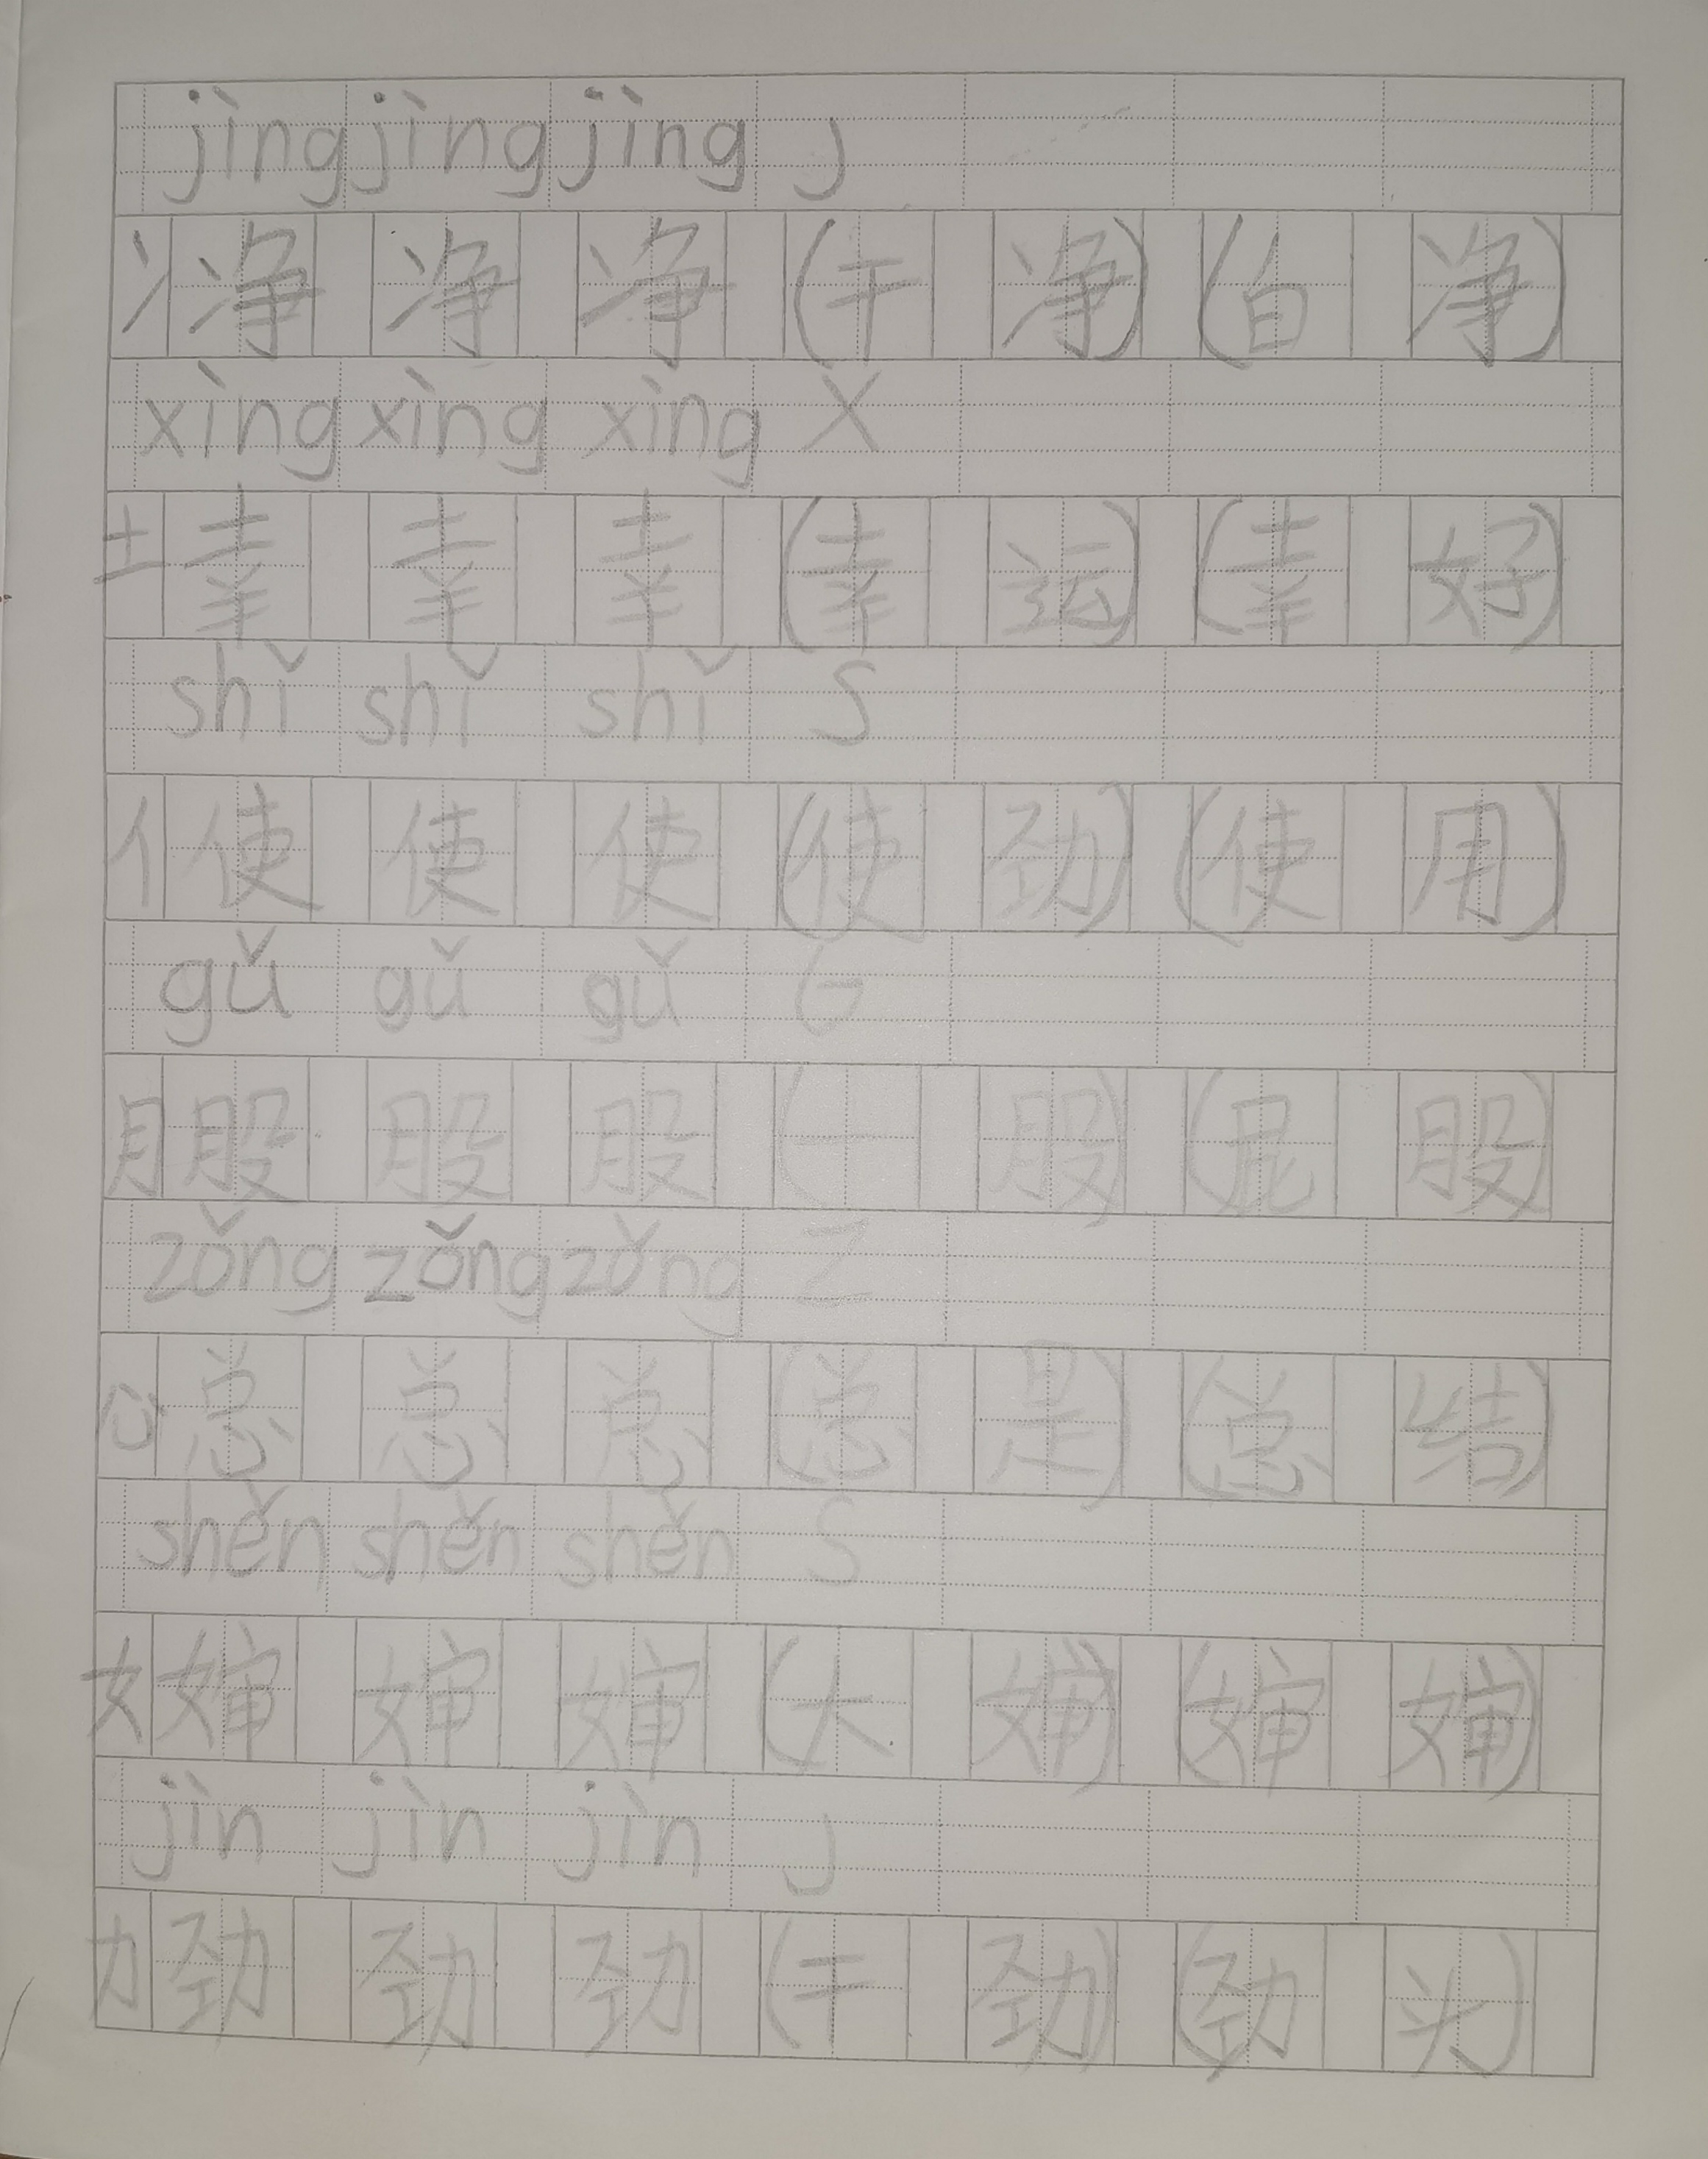 jìng jìng jìng J
冫净 净 净 (干 净) (白 净)
xìng xìng xìng X
土幸 幸 幸 (幸 运) (幸 好)
shǐ shǐ shǐ S
亻使 使 使 (使 劲) (使 用)
gǔ gǔ gǔ G
月股 股 股 (一 股) (屁 股)
zǒng zǒng zǒng Z
心总 总 总 (总 是) (总 结)
shěn shěn shěn S
女婶 婶 婶 (大 婶) (婶 婶)
jìn jìn jìn J
力劲 劲 劲 (干 劲) (劲 头)